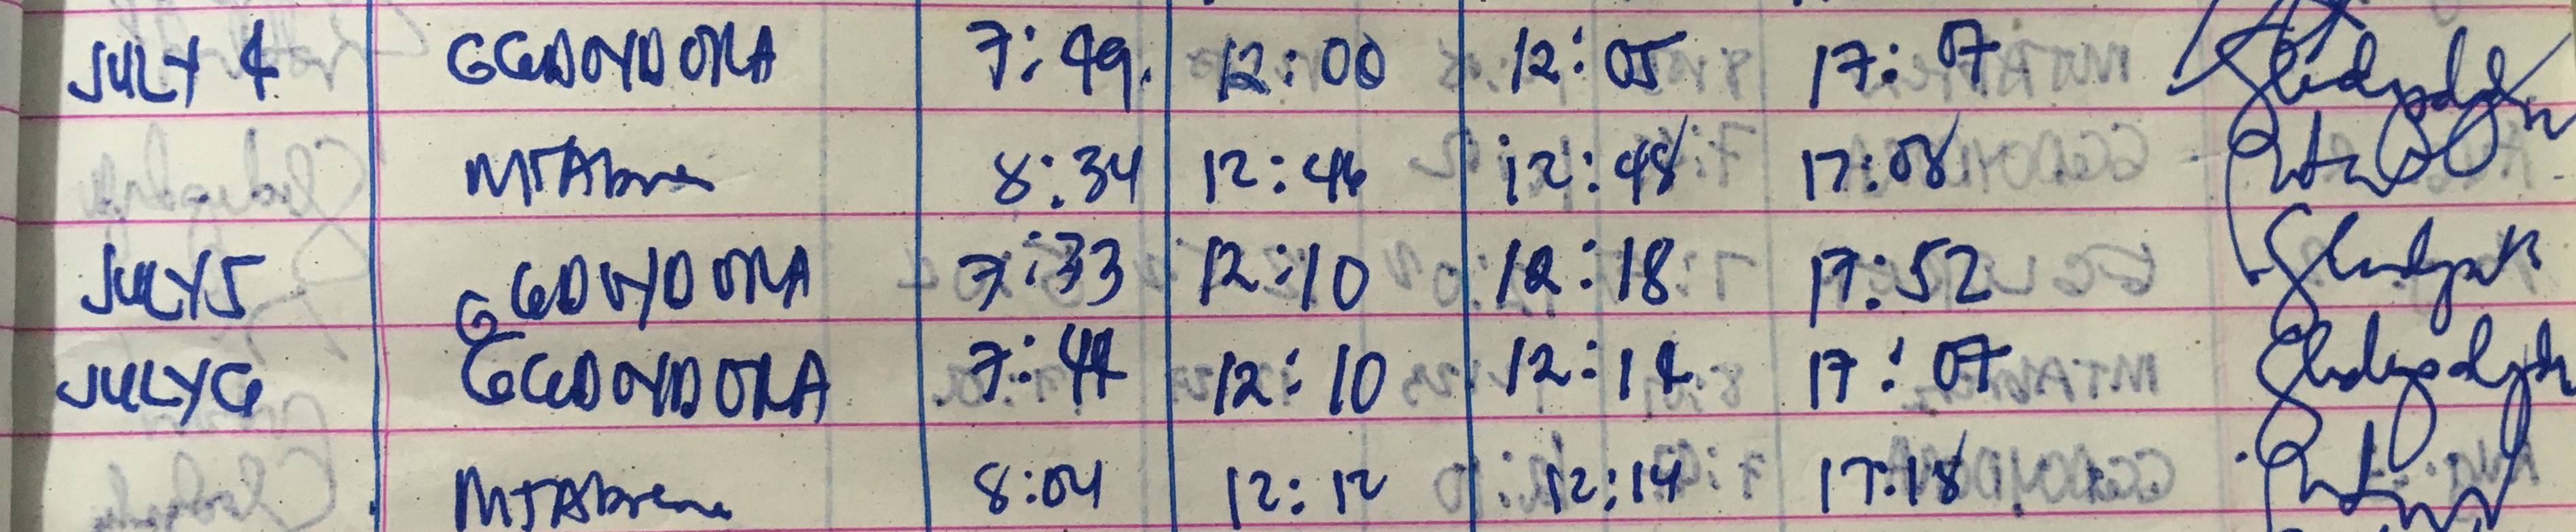 JULY 4 GGDOYDORA 7:49 12:00 12:05 17:07
MTAbrea 8:34 12:46 12:48 17:08
JULY 5 GGDOYDORA 7:33 12:10 12:18 17:52
JULY 6 GGDOYDORA 7:44 12:10 12:14 17:07
8:04 12:12 12:14 17:18